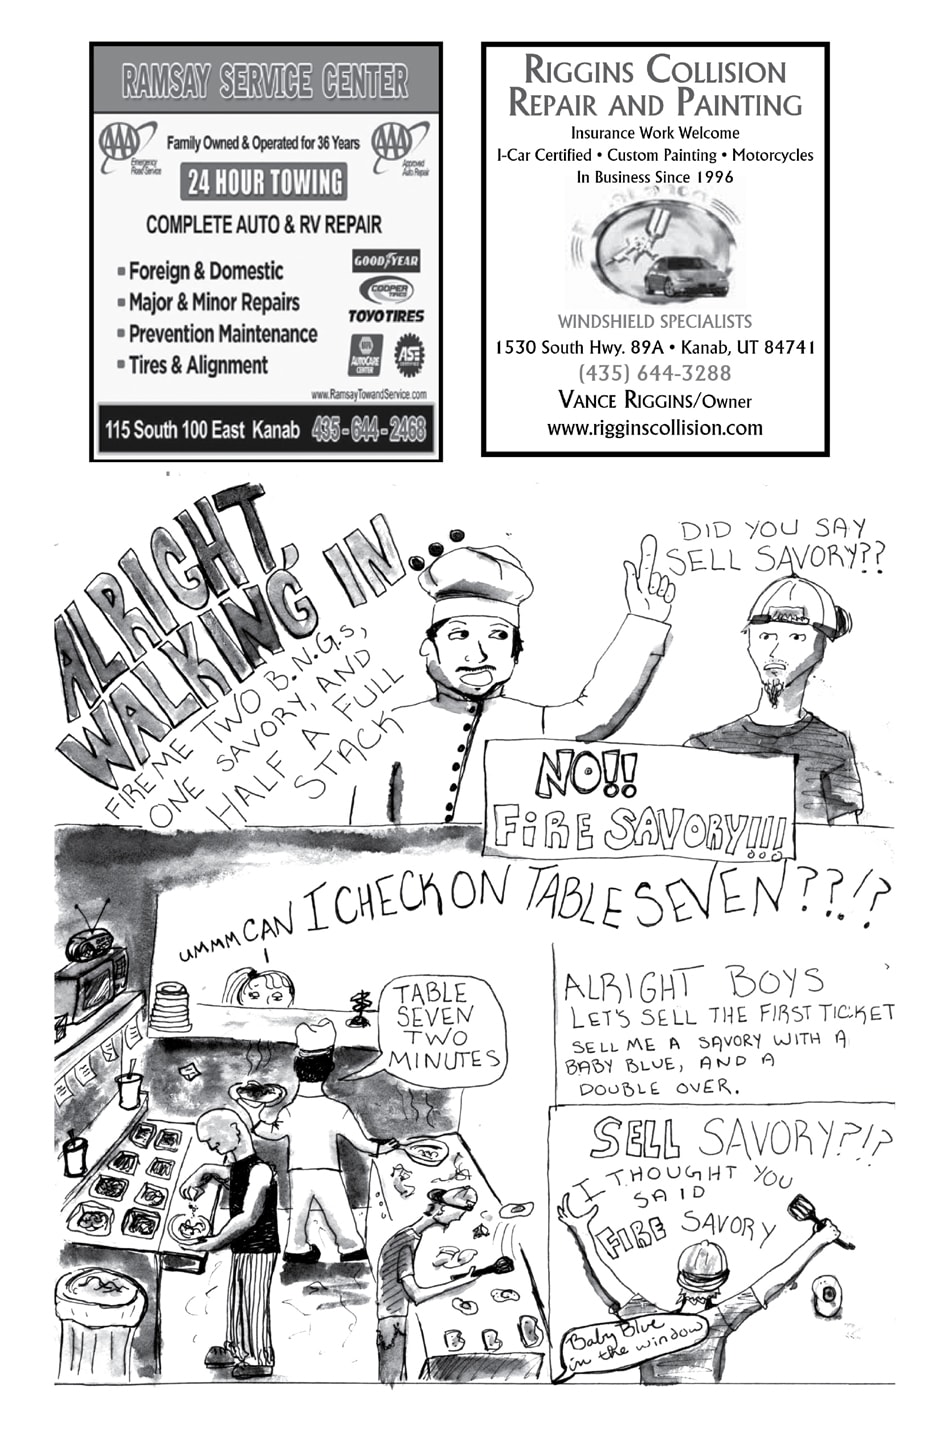 RAMSAY SERVICE CENTER
AAA
Emergency
Road Service
Family Owned & Operated for 36 Years
AAA
Approved
Auto Repair
24 HOUR TOWING
COMPLETE AUTO & RV REPAIR
Foreign & Domestic
Major & Minor Repairs
Prevention Maintenance
Tires & Alignment
GOODYEAR
COOPER
TIRES
TOYO TIRES
NAPA
AUTOCARE
CENTER
ASE
www.RamsayTowandService.com
115 South 100 East Kanab 435-644-2468
RIGGINS COLLISION
REPAIR AND PAINTING
Insurance Work Welcome
I-Car Certified • Custom Painting • Motorcycles
In Business Since 1996
WINDSHIELD SPECIALISTS
1530 South Hwy. 89A • Kanab, UT 84741
(435) 644-3288
VANCE RIGGINS/Owner
www.rigginscollision.com
ALRIGHT,
WALKING IN...
FIRE ME TWO B.N.G.s,
ONE SAVORY, AND
HALF A FULL
STACK
DID YOU SAY
SELL SAVORY??
NO!!
FIRE SAVORY!!!
UMMM CAN I CHECK ON TABLE SEVEN??!?
TABLE
SEVEN
TWO
MINUTES
ALRIGHT BOYS
LET'S SELL THE FIRST TICKET
SELL ME A SAVORY WITH A
BABY BLUE, AND A
DOUBLE OVER.
SELL SAVORY?!?
I THOUGHT YOU
SAID
FIRE SAVORY
Baby Blue
in the window